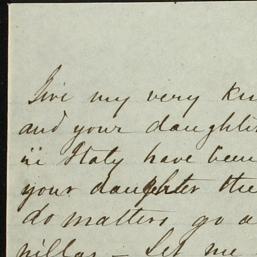 Give my very
and your daughter
in Italy have been
your daughter the
do matters go a
Let me